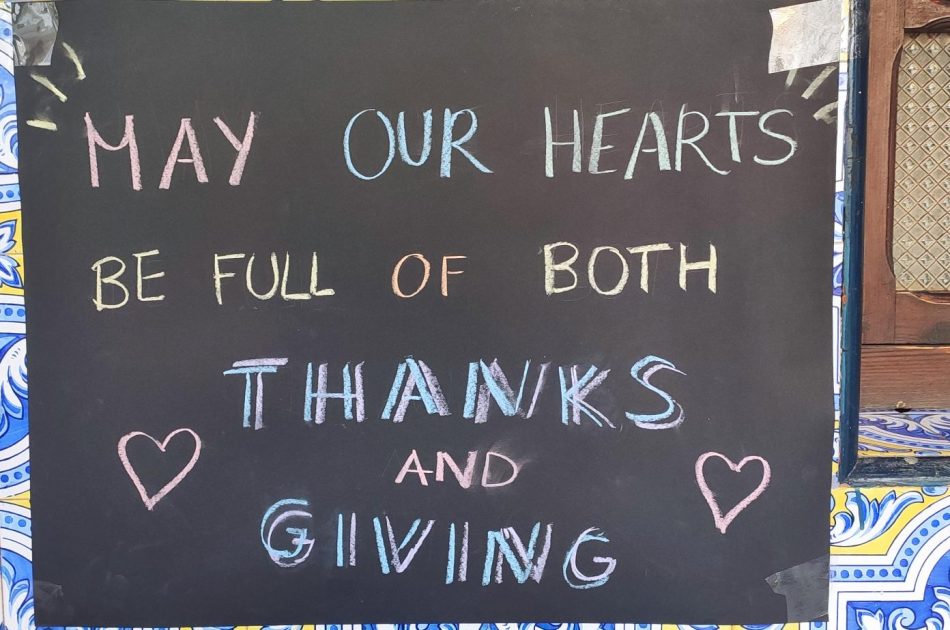 MAY OUR HEARTS
BE FULL OF BOTH
THANKS
AND
GIVING